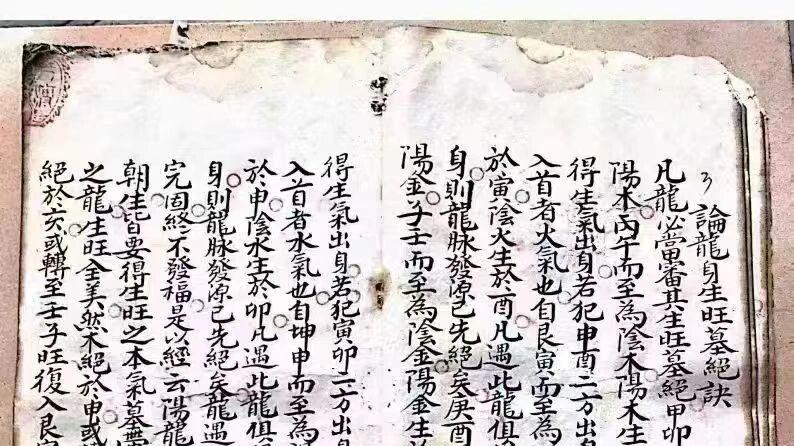 論龍身生旺墓絕訣
凡龍必當審其生旺墓絕甲卯
陽木丙午而至為陰木陽木生
得生氣出身若犯申酉二方出
入首者火氣也自艮寅而至為
於寅陰火生於酉凡遇此龍俱
身則龍脉發源已先絕矣庚酉
陽金子壬而至為陰金陽金生
得生氣出身若犯寅卯二方出
入首者水氣也自坤申而至為
於申陰水生於卯凡遇此龍俱
身則龍脉發源已先絕矣龍遇
完固終不發福是以經云陽龍
朝生皆要得生旺之本氣墓
之龍生旺全美然木絕於申或
絕於亥或轉至壬子旺復入艮